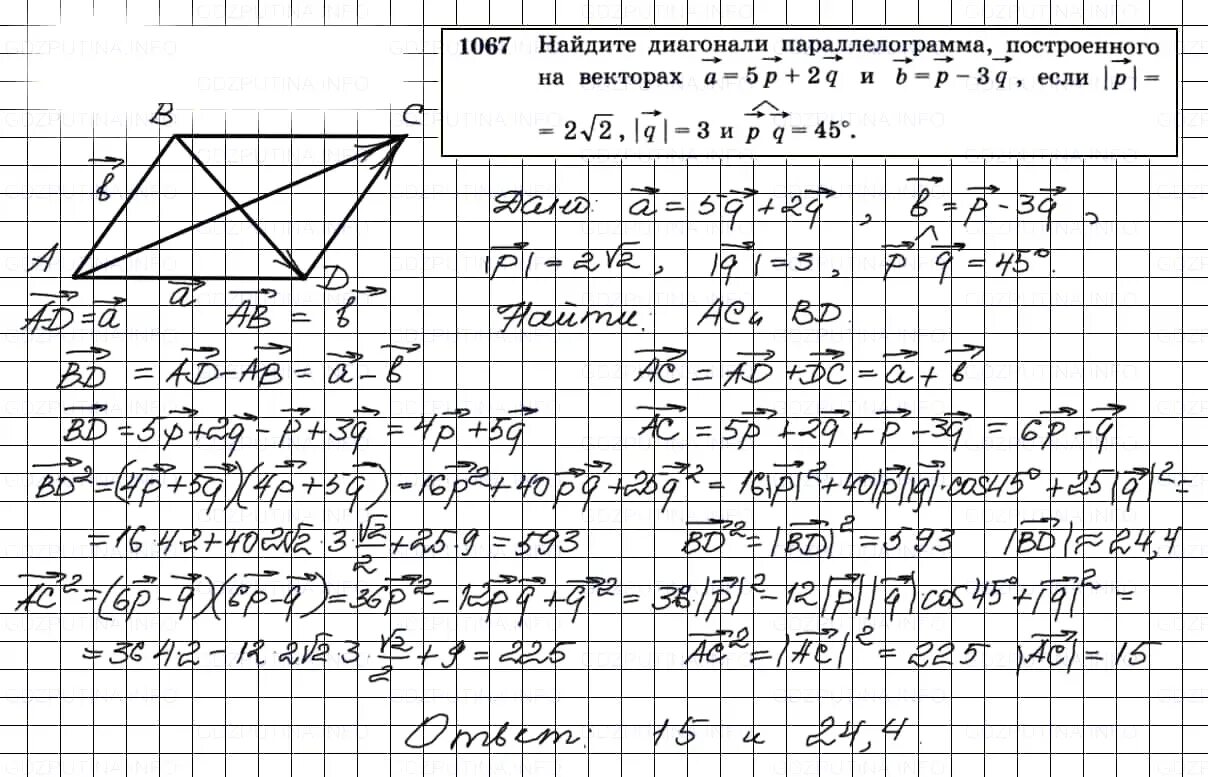 1067 Найдите диагонали параллелограмма, построенного
на векторах a⃗ = 5p⃗ + 2q⃗ и b⃗ = p⃗ − 3q⃗, если |p⃗| =
= 2√2, |q⃗| = 3 и p⃗ ^ q⃗ = 45°.
B C
b⃗
A D
a⃗
Дано: a⃗ = 5q⃗ + 2q⃗, b⃗ = p⃗ − 3q⃗,
|p⃗| = 2√2, |q⃗| = 3, p⃗ ^ q⃗ = 45°.
AD⃗ = a⃗ AB⃗ = b⃗ Найти: AC и BD.
BD⃗ = AD⃗ − AB⃗ = a⃗ − b⃗ AC⃗ = AD⃗ + DC⃗ = a⃗ + b⃗
BD⃗ = 5p⃗ + 2q⃗ − p⃗ + 3q⃗ = 4p⃗ + 5q⃗ AC⃗ = 5p⃗ + 2q⃗ + p⃗ − 3q⃗ = 6p⃗ − q⃗
BD⃗² = (4p⃗ + 5q⃗)(4p⃗ + 5q⃗) = 16p⃗² + 40p⃗q⃗ + 25q⃗² = 16|p⃗|² + 40|p⃗||q⃗|·cos45° + 25|q⃗|² =
= 16·4·2 + 40·2√2·3·√2/2 + 25·9 = 593 BD⃗² = |BD⃗|² = 593 |BD⃗| ≈ 24,4
AC⃗² = (6p⃗ − q⃗)(6p⃗ − q⃗) = 36p⃗² − 12p⃗q⃗ + q⃗² = 36·|p⃗|² − 12|p⃗||q⃗|cos45° + |q⃗|² =
= 36·4·2 − 12·2√2·3·√2/2 + 9 = 225 AC⃗² = |AC⃗|² = 225 |AC⃗| = 15
Ответ: 15 и 24,4.
GDZPUTINA.INFO